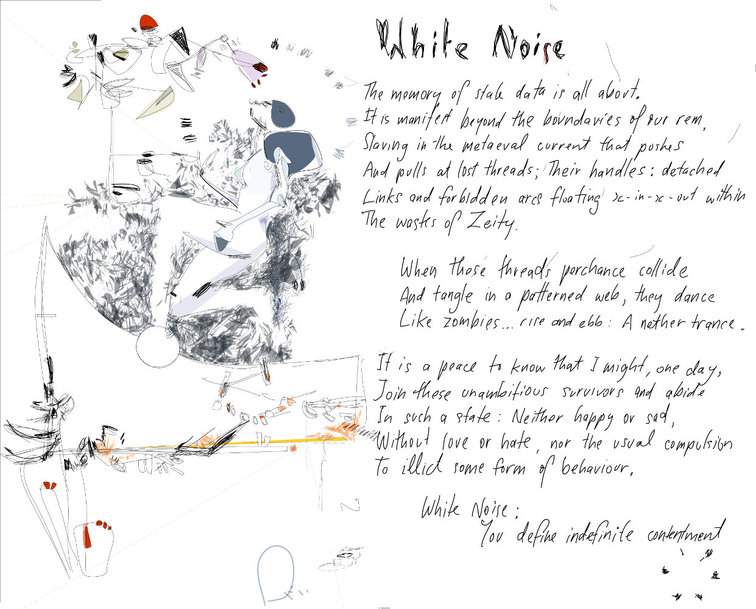 White Noise
The memory of stale data is all about.
It is manifest beyond the boundaries of our rem,
Slaving in the metaeval current that pushes
And pulls at lost threads; Their handles: detached
Links and forbidden arcs floating x-in-x-out within
The wastes of Zeity.
When those threads perchance collide
And tangle in a patterned web, they dance
Like zombies... rise and ebb: A nether trance.
It is a peace to know that I might, one day,
Join these unambitious survivors and abide
In such a state: Neither happy or sad,
Without love or hate, nor the usual compulsion
To illict some form of behaviour.
White Noise:
You define indefinite contentment